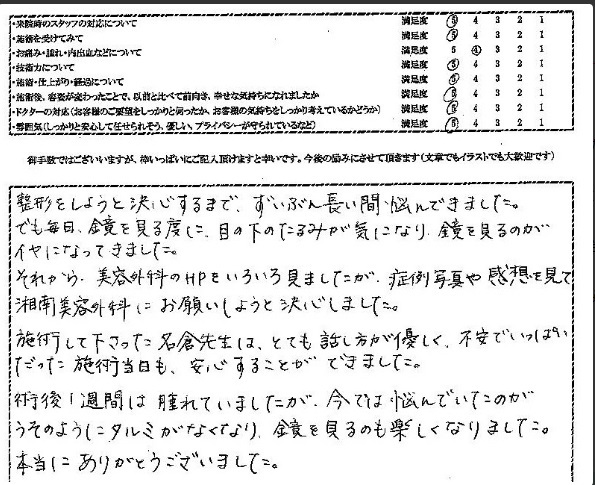 ・来院時のスタッフの対応について 満足度 5 4 3 2 1
・施術を受けてみて 満足度 5 4 3 2 1
・お痛み・腫れ・内出血などについて 満足度 5 4 3 2 1
・技術力について 満足度 5 4 3 2 1
・施術・仕上がり・経過について 満足度 5 4 3 2 1
・施術後、容姿が変わったことで、以前と比べて前向き、幸せな気持ちになれましたか 満足度 5 4 3 2 1
・ドクターの対応(お客様のご要望をしっかりと伺ったか、お客様の気持ちをしっかり考えているかどうか) 満足度 5 4 3 2 1
・雰囲気(しっかりと安心して任せられそう、優しい、プライバシーが守られているなど) 満足度 5 4 3 2 1
御手数ではございいますが、枠いっぱいにご記入頂けますと幸いです。今後の励みにさせて頂きます(文章でもイラストでも大歓迎です)
整形をしようと決心するまで、ずいぶん長い間悩んできました。
でも毎日、鏡を見る度に、目の下のたるみが気になり、鏡を見るのが
イヤになってきました。
それから、美容外科のHPをいろいろ見ましたが、症例写真や感想を見て
湘南美容外科にお願いしようと決心しました。
施術して下さった名倉先生は、とても話し方が優しく、不安でいっぱい
だった施術当日も、安心することができました。
術後1週間は腫れていましたが、今では悩んでいたのが
うそのようにタルミがなくなり、鏡を見るのも楽しくなりました。
本当にありがとうございました。